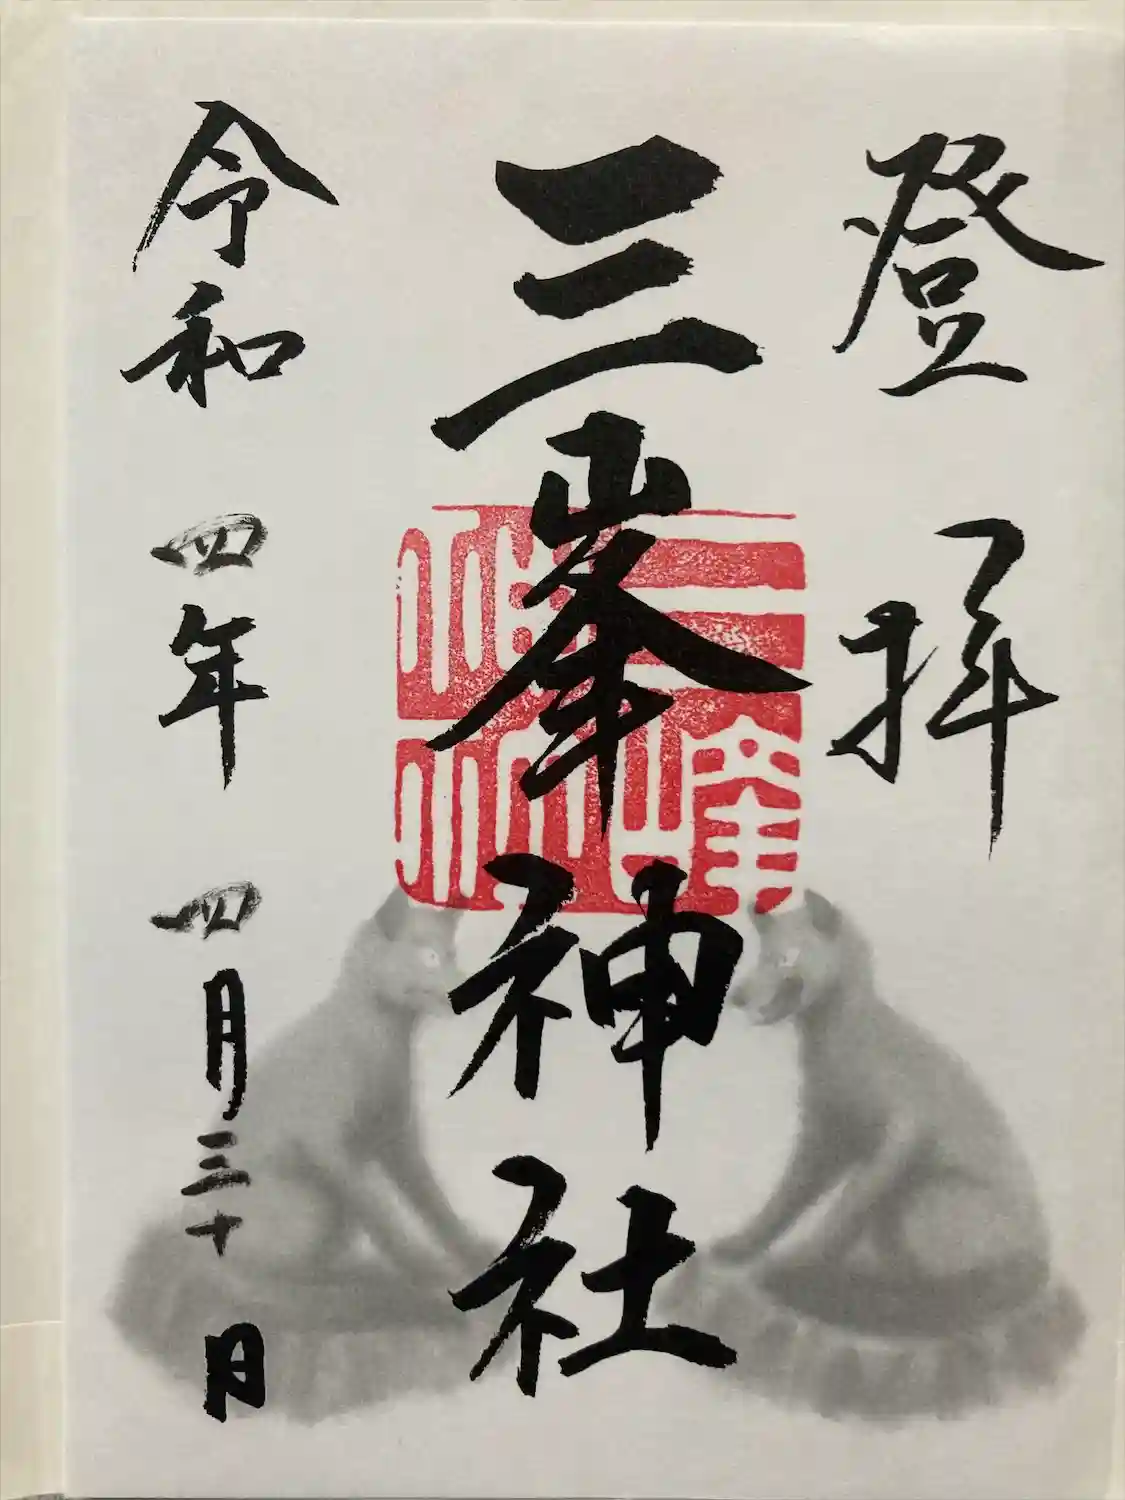 登拝
三峯神社
令和四年四月三十日
三峰神社